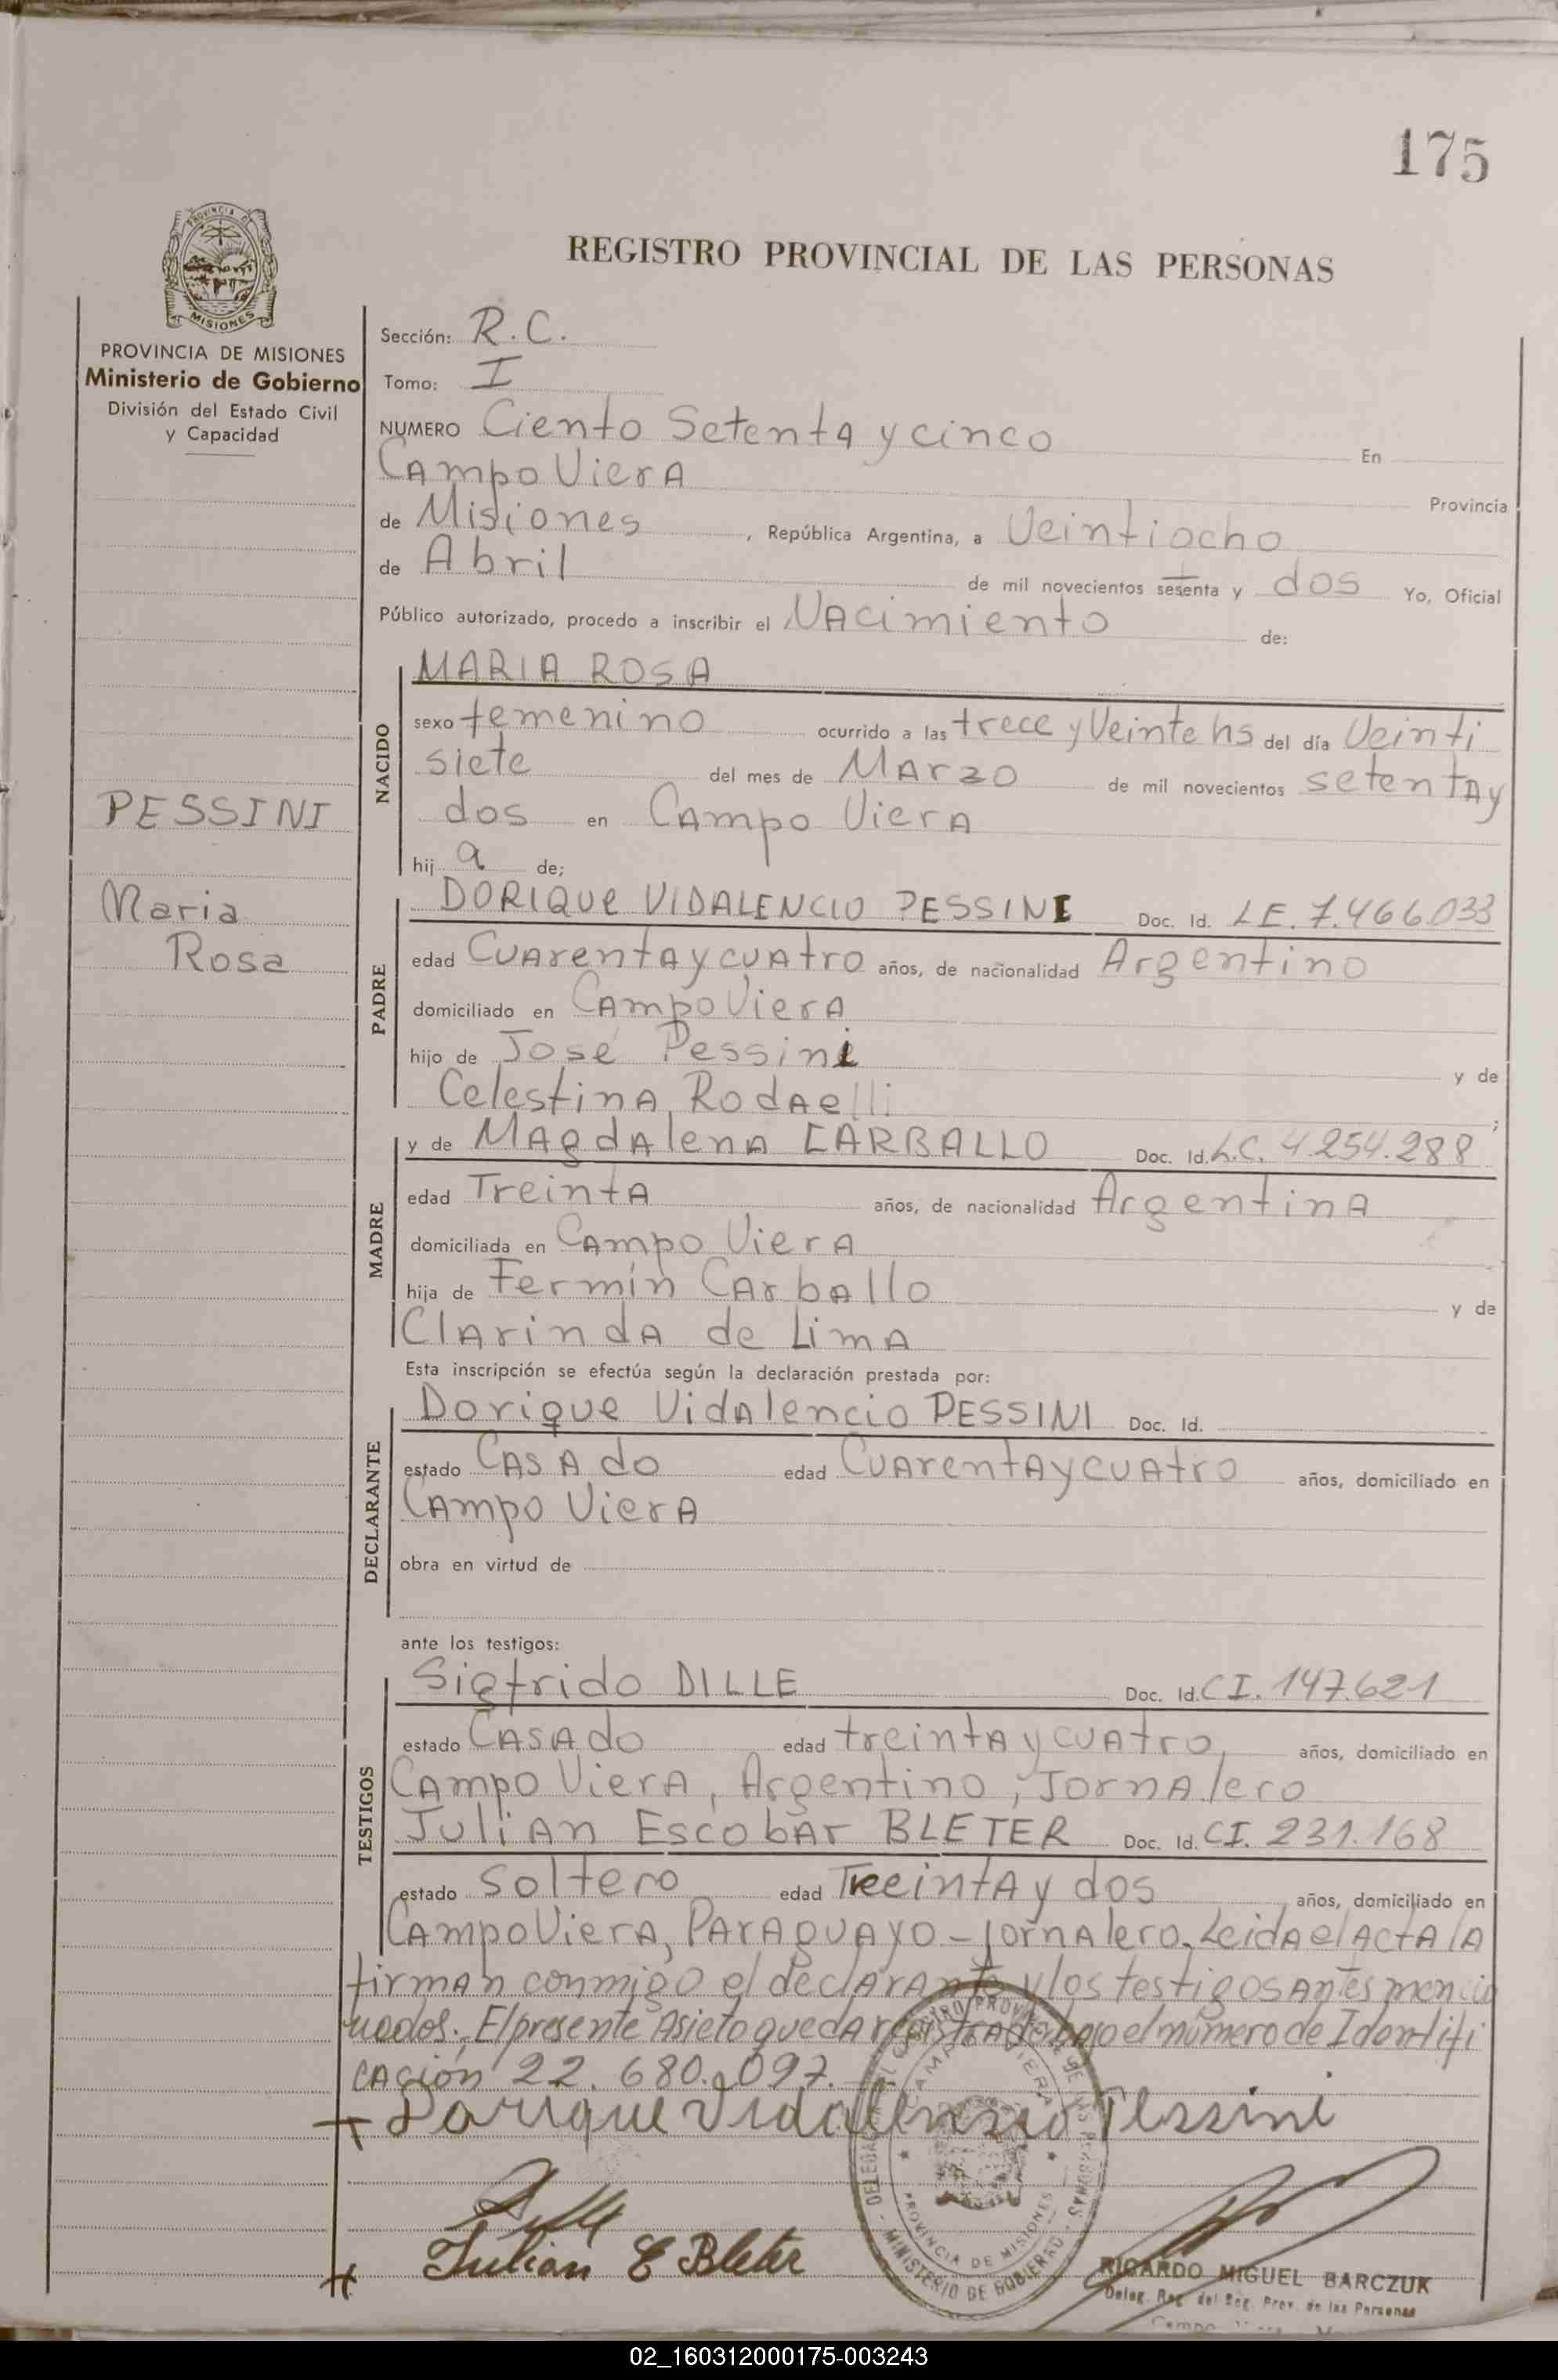 175
REGISTRO PROVINCIAL DE LAS PERSONAS
PROVINCIA DE MISIONES
Ministerio de Gobierno
División del Estado Civil
y Capacidad
PESSINI
Maria
Rosa
Sección: R.C.
Tomo: I
NUMERO Ciento Setenta y cinco En
Campo Viera Provincia
de Misiones, República Argentina, a Veintiocho
de Abril de mil novecientos setenta y dos Yo, Oficial
Público autorizado, procedo a inscribir el Nacimiento de:
NACIDO
MARIA ROSA
sexo femenino ocurrido a las trece y Veinte hs del día Veinti
siete del mes de Marzo de mil novecientos setenta y
dos en Campo Viera
hija de;
PADRE
DORIQUE VIDALENCIO PESSINI Doc. Id. L.E. 7.466.033
edad Cuarenta y cuatro años, de nacionalidad Argentino
domiciliado en Campo Viera
hijo de José Pessini y de
Celestina Rodaelli;
MADRE
y de Magdalena CARBALLO Doc. Id. L.C. 4.254.288
edad Treinta años, de nacionalidad Argentina
domiciliada en Campo Viera
hija de Fermín Carballo y de
Clarinda de Lima
Esta inscripción se efectúa según la declaración prestada por:
DECLARANTE
Dorique Vidalencio PESSINI Doc. Id.
estado Casado edad Cuarenta y cuatro años, domiciliado en
Campo Viera
obra en virtud de
ante los testigos:
TESTIGOS
Sigfrido DILLE Doc. Id. C.I. 147.621
estado Casado edad treinta y cuatro, años, domiciliado en
Campo Viera, Argentino, Jornalero
Julian Escobar BLETER Doc. Id. C.I. 231.168
estado Soltero edad Treinta y dos, años, domiciliado en
Campo Viera, Paraguayo - Jornalero. Leida el Acta la
firman conmigo el declarante y los testigos antes mencio
nados. El presente Asieto queda registrado bajo el número de Identifi
cación 22.680.097.
Dorique Vidalencio Pessini
Julian E Bleter
DELEGACION REGISTRO PROVINCIAL DE LAS PERSONAS - MINISTERIO DE GOBIERNO -
CAMPO VIERA
PROVINCIA DE MISIONES
RICARDO MIGUEL BARCZUK
Deleg. Reg. del Reg. Prov. de las Personas
02_160312000175-003243